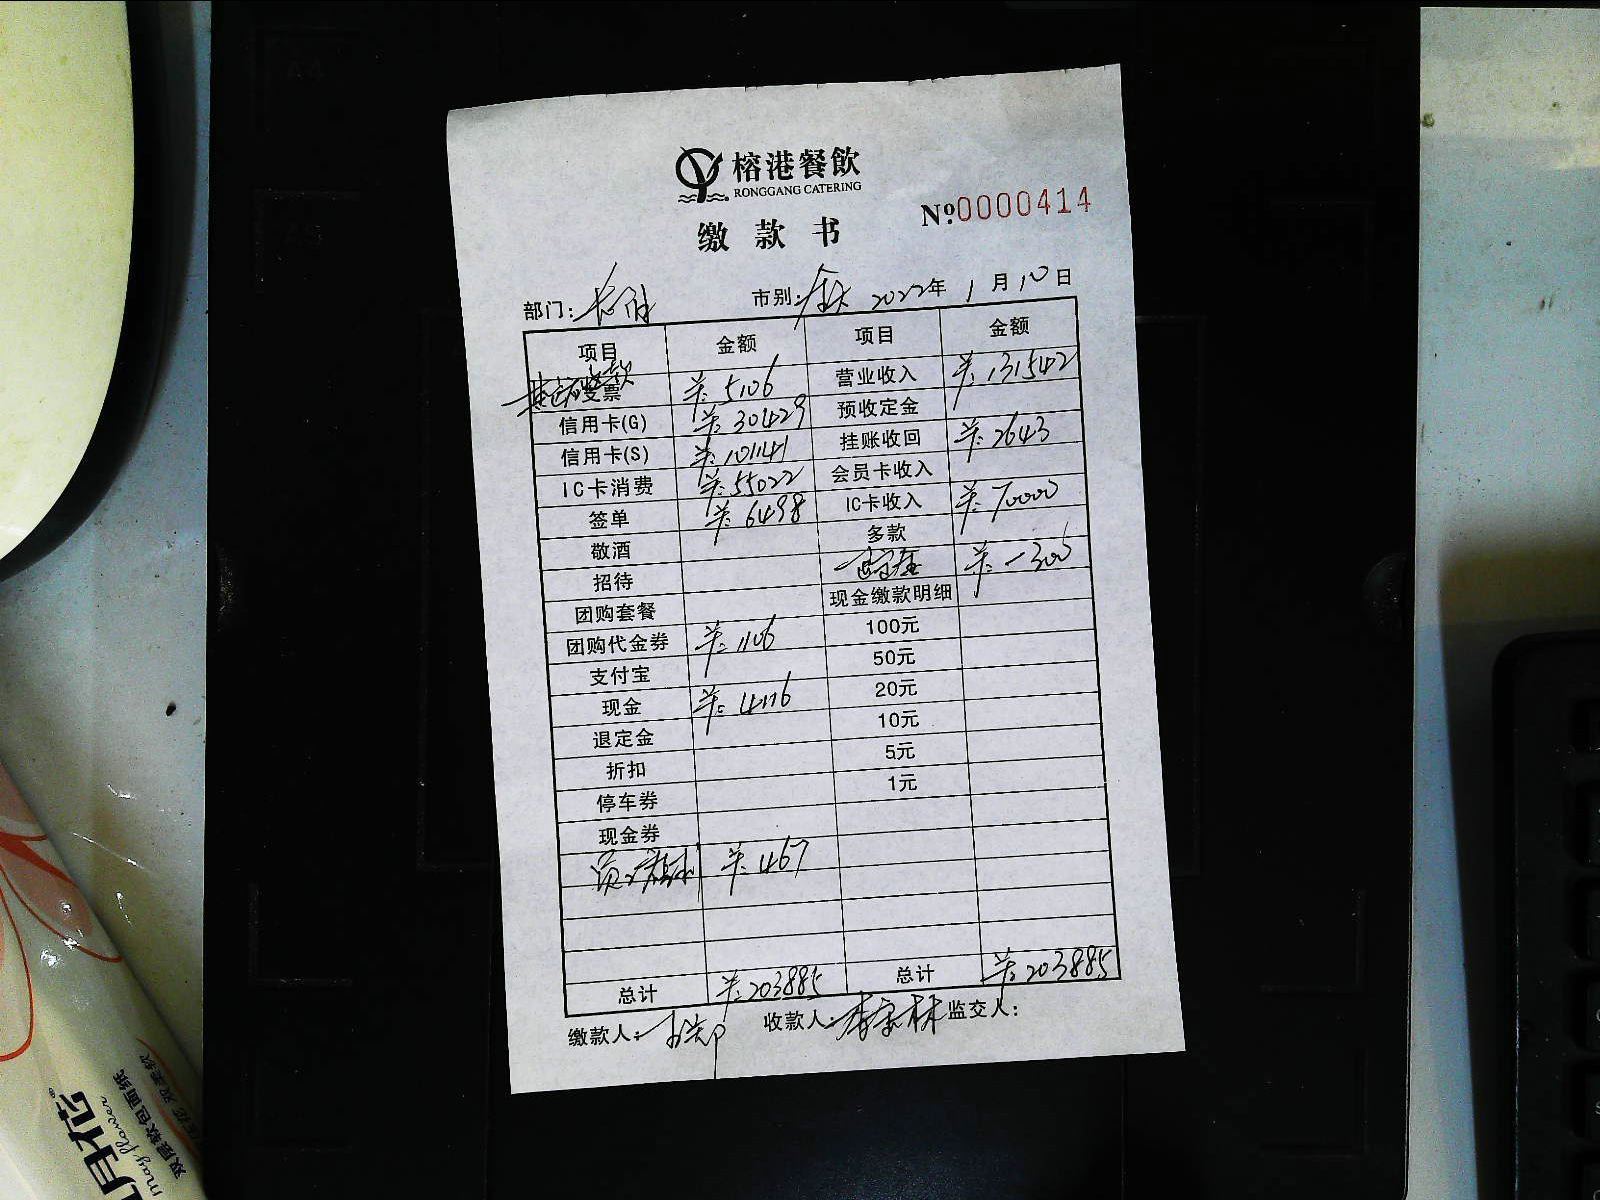 榕港餐飲
RONGGANG CATERING
缴款书
Nº0000414
部门: 市别: 全天 2022年 1月10日
项目 金额 项目 金额
支票 羊: 5106 营业收入 羊: 131542
信用卡(G) 羊: 30429 预收定金
信用卡(S) 羊: 101141 挂账收回 羊: 2643
IC卡消费 羊: 55022 会员卡收入
签单 羊: 6498 IC卡收入 羊: 70000
敬酒 多款
招待 羊: -300
团购套餐 现金缴款明细
团购代金券 羊: 1106 100元
支付宝 50元
现金 羊: 4116 20元
退定金 10元
折扣 5元
停车券 1元
现金券
羊: 467
总计 羊: 203885 总计 羊: 203885
缴款人: 收款人: 监交人:
月花®
may flower
双层软包面纸